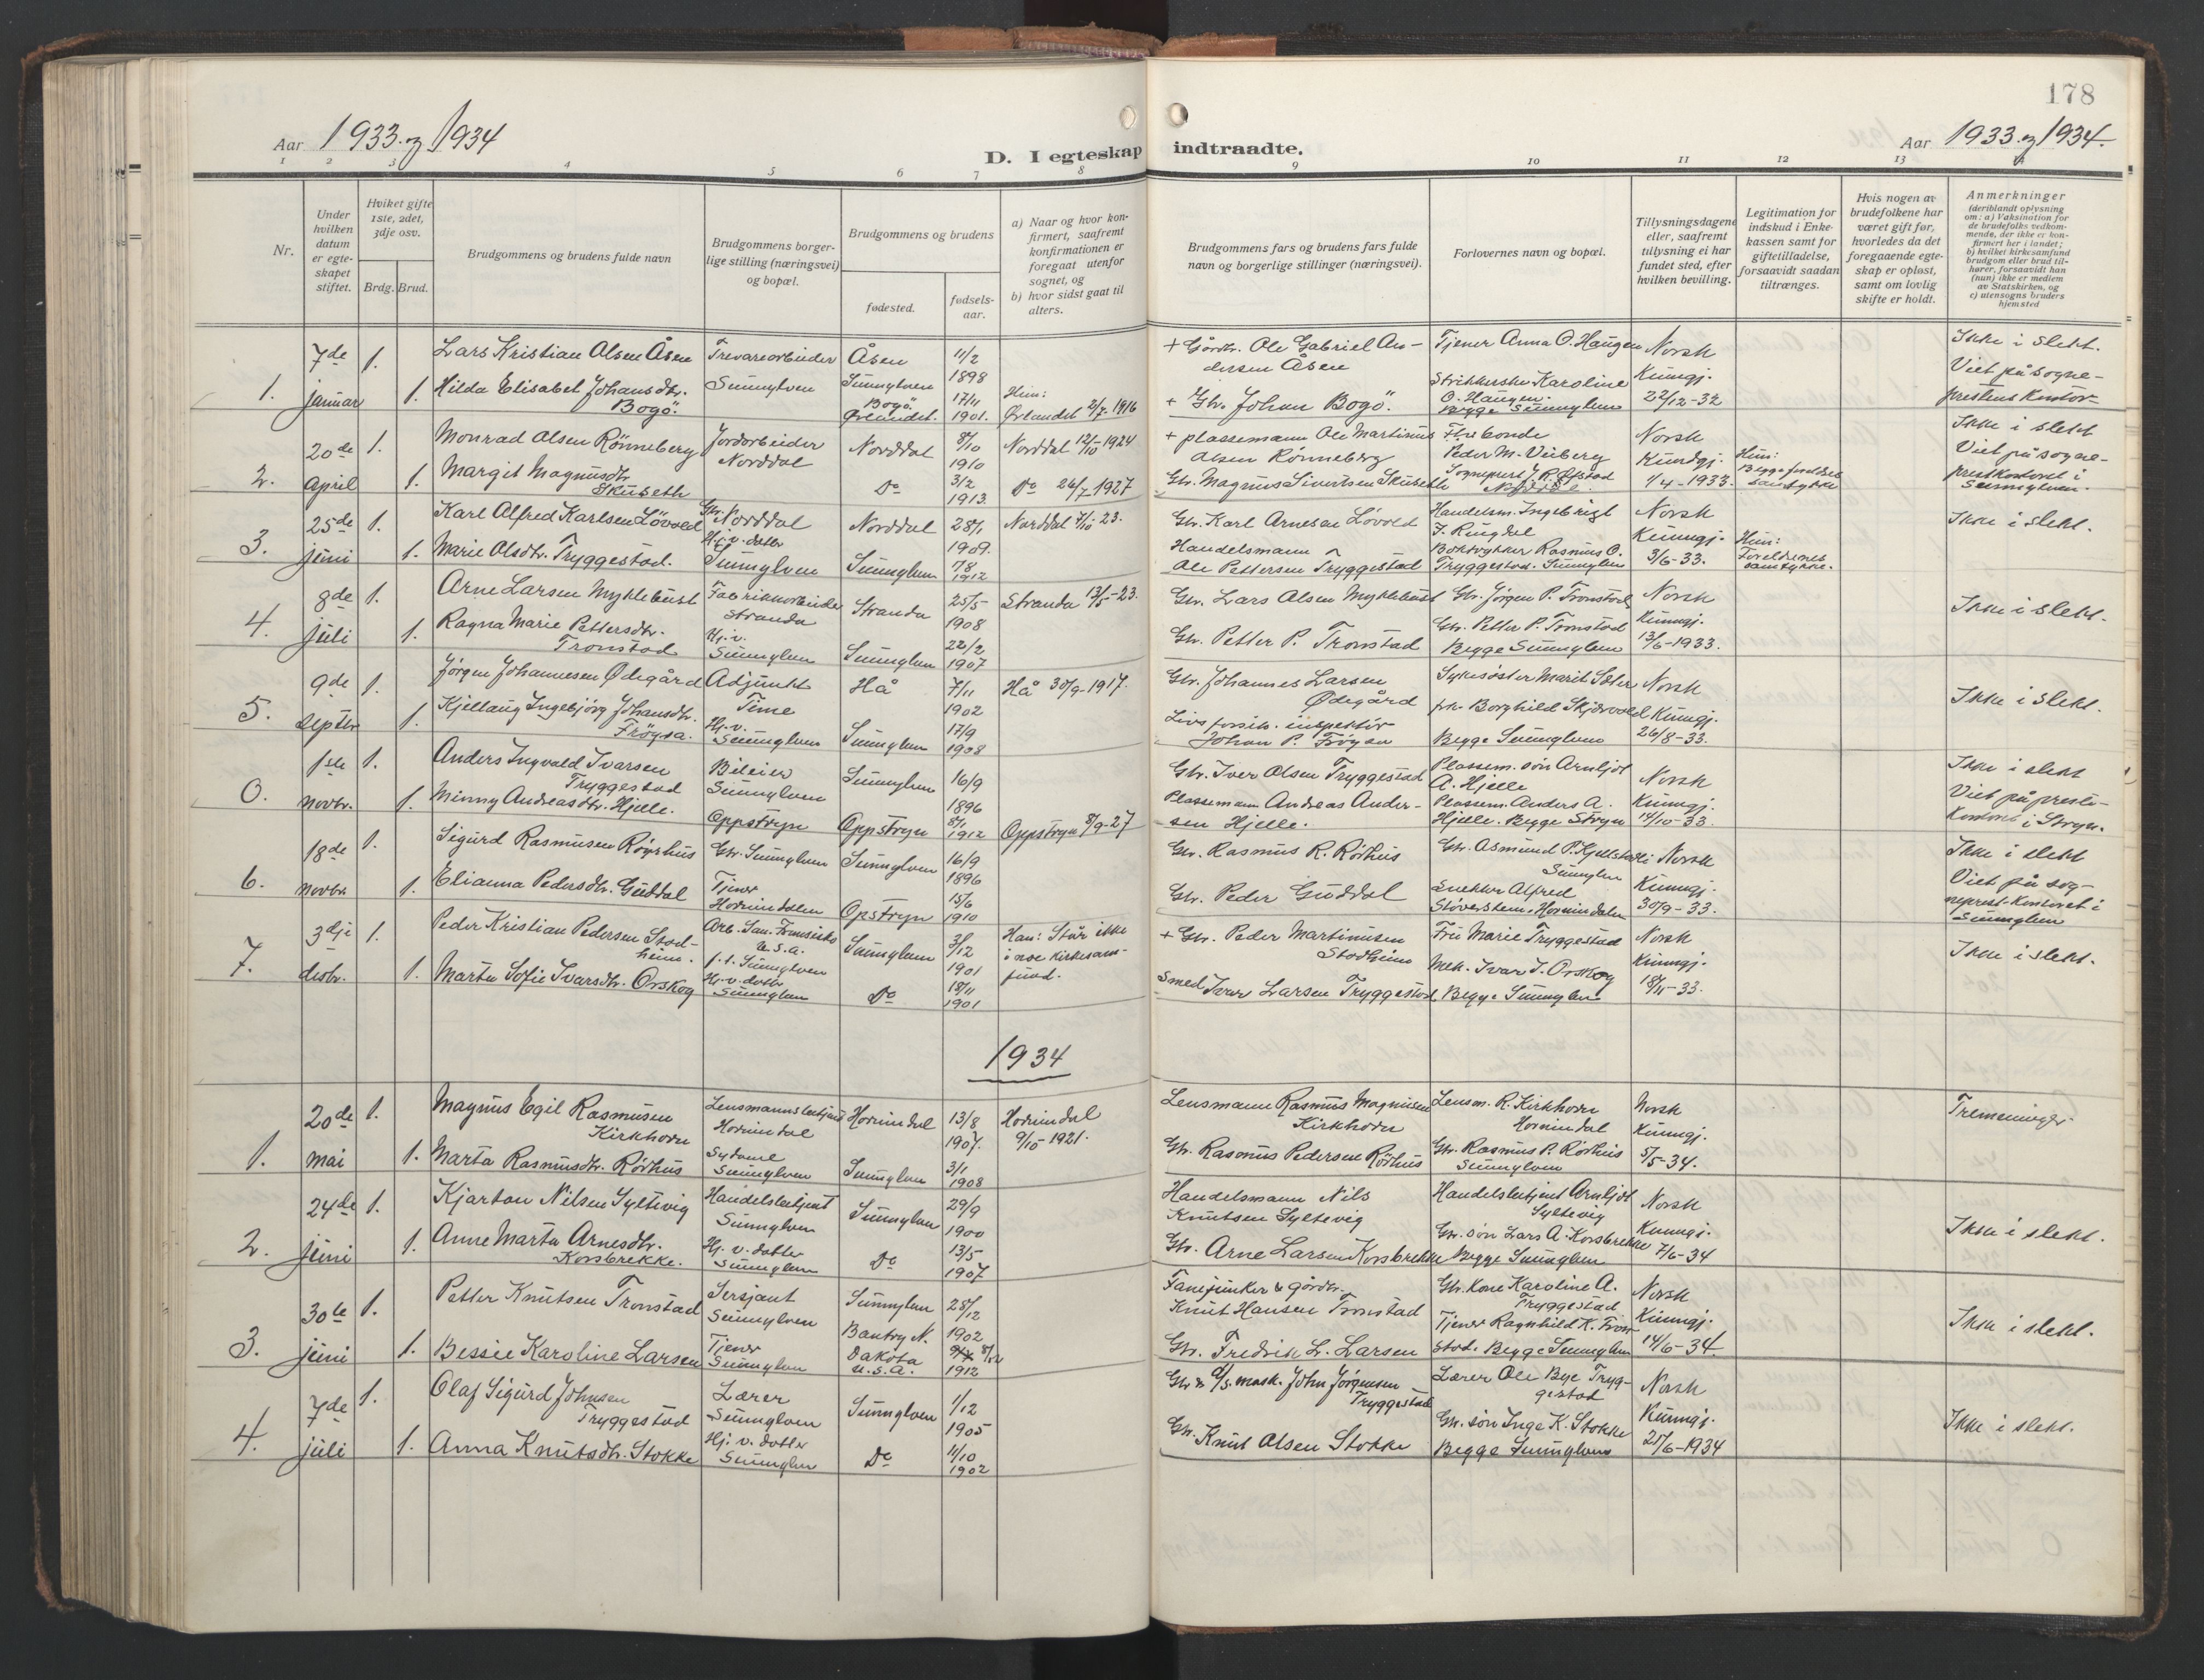 178
Aar 1933 og 1934
D. I egteskap indtraadte.
Aar 1933 og 1934.
1 2 3 4 5 6 7 8 9 10 11 12 13 14
Nr.
Under hvilken datum er egteskapet stiftet.
Hviket gifte 1ste, 2det, 3dje osv.
Brdg. Brud.
Brudgommens og brudens fulde navn
Brudgommens borgerlige stilling (næringsvei) og bopæl.
Brudgommens og brudens
fødested.
fødselsaar.
a) Naar og hvor konfirmert, saafremt konfirmationen er foregaat utenfor sognet, og
b) hvor sidst gaat til alters.
Brudgommens fars og brudens fars fulde navn og borgerlige stillinger (næringsvei).
Forlovernes navn og bopæl.
Tillysningsdagene eller, saafremt tillysning ei har fundet sted, efter hvilken bevilling.
Legitimation for indskud i Enkekassen samt for giftetilladelse, forsaavidt saadan tiltrænges.
Hvis nogen av brudefolkene har været gift før, hvorledes da det foregaaende egteskap er opløst, samt om lovlig skifte er holdt.
Anmerkninger
(deriblandt oplysning om: a) Vaksination for de brudefolks vedkommende, der ikke er konfirmert her i landet;
b) hvilket kirkesamfund brudgom eller brud tilhører, forsaavidt han (hun) ikke er medlem av Statskirken, og
c) utensogns bruders hjemsted
1. 7de januar 1. Lars Kristian Olsen Åsen Trevarearbeider Sunnylven Åsen Sunnylven 11/2 1898
+ Gårdbr. Ole Gabriel Andersen Åsen Tjener Anna O. Haugen Norsk Kunngj. 22/12-32 Ikke i slekt.
1. Hilda Elisabet Johansdtr. Bogö. Bogö Ørlandet. 17/11 1901. Hun: Ørlandet 2/7-1916
+ Gbr. Johan Bogö. Karoline O. Haugen. Begge Sunnylven Viet på sogneprestens kontor
2. 20de april 1. Monrad Olsen Rönneberg Jordarbeider Norddal Norddal 8/10 1910 Norddal 12/10-1924
+ plassemann Ole Martinus Olsen Rönneberg Peder M. Norsk Kundgj. 1/4-1933. Ikke i slekt
1. Margit Magnusdtr. Skubseth Do 3/2 1913. Do 26/7-1927
Gbr. Magnus Sivertsen Skubseth Hun: Begge foreldres samtykke Viet på prestkontoret i Sunnylven.
3. 25de juni 1. Karl Alfred Karlsen Lövold Gbr. Norddal Norddal 28/1 1909. Norddal 7/10 23.
Gbr. Karl Arnesen Lövold Handelsm. Ingebrigt J. Ringdal Norsk Kunngj. 3/6-33. Ikke i slekt.
1. Marie Olsdtr. Tryggestad. Hj. v. datter Sunnylven Sunnylven 7/8 1912
Handelsmann Ole Pettersen Tryggestad Boktrykker Rasmus O. Tryggestad. Sunnylven Hun: Foreldrenes samtykke.
4. 8de juli 1. Arne Larsen Myklebust Fabrikkarbeider Stranda Stranda 25/5 1908 Stranda 13/5-23.
Gbr. Lars Olsen Myklebust Gbr. Jörgen P. Tronstad Norsk Kunngj. 13/6-1933. Ikke i slekt.
1. Ragna Marie Pettersdtr. Tronstad Hj. v. Sunnylven Sunnylven 22/2 1907
Gbr. Petter P. Tronstad Gbr. Petter P. Tronstad Begge Sunnylven
5. 9de septbr 1. Jörgen Johannesen Ødegård Adjunkt Time Hå 7/11 1902 Hå 30/9-1917.
Gbr. Johannes Larsen Ødegård Sykesöster Marit Norsk Kunngj. 26/8-33. Ikke i slekt.
1. Kjellaug Ingebjörg Johansdtr. Fröysa. Hj. v. Sunnylven Sunnylven 17/9 1908
Livsforsik. inspektör Johan P. Fröysa frk. Borghild Skjervold Begge Sunnylven
0. 1ste novbr. 1. Anders Ingvald Ivarsen Tryggestad Bileier Sunnylven Sunnylven 16/9 1896
Gbr. Iver Olsen Tryggestad Plassem. sön Arnljot A. Hjelle Norsk Kunngj. 14/10-33. Ikke i slekt
1. Minny Andreasdtr. Hjelle. Oppstryn Oppstryn 8/1 1912 Oppstryn 8/9-27
Plassemann Andreas Andersen Hjelle. Plassem. Anders A. Hjelle. Begge Stryn Viet på prestekontoret i Stryn.
6. 18de novbr 1. Sigurd Rasmusen Röyrhus Gbr. Sunnylven Sunnylven 16/9 1896
Gbr. Rasmus R. Rörhus Gbr. Asmund P. Kjellstadli Sunnylven Norsk Kunngj. 30/9-33. Ikke i slekt
1. Elianna Pedersdtr. Guddal Tjener Hornindalen Opstryn 15/6 1910
Gbr. Peder Guddal Snekker Alfred Støverstein, Hornindalen Viet på sogneprest-kontoret i Sunnylven
7. 3dje desbr. 1. Peder Kristian Pedersen Stadheim. Arb. San. Fransisko U.S.A. p.t. Sunnylven Sunnylven 3/12 1901 Han: Står ikke i noe kirkesamfund.
+ Gbr. Peder Martinusen Stadheim Fru Marie Tryggestad Norsk Kunngj. 18/11-33. Ikke i slekt.
1. Marta Sofie Ivarsdtr. Orskog Hj. v. datter Sunnylven Do 18/11 1901
Smed Iver Larsen Tryggestad Mek. Ivar I. Orskog Begge Sunnylven
1934
1. 20de mai 1. Magnus Egil Rasmusen Kirkhorn Lensmannsbetjent Hornindal Hornindal 13/8 1907. Hornindal 9/10-1921.
Lensmann Rasmus Magnusen Kirkhorn Lensm. R. Kirkhorn Hornindal Norsk Kunngj. 5/5-34. Tremeninger
1. Marta Rasmusdtr. Rörhus Sydame Sunnylven Sunnylven 3/1 1908
Gbr. Rasmus Pedersen Rörhus Gbr. Rasmus P. Rörhus Sunnylven
2. 24de juni 1. Kjartan Nilsen Syltevig Handelsbetjent Sunnylven Sunnylven 29/9 1900
Handelsmann Nils Knutsen Syltevig Handelsbetjent Arnljot Syltevig Norsk Kunngj. 7/6-34 Ikke i slekt.
1. Anne Marta Arnesdtr. Korsbrekke. Hj. v. datter Sunnylven Do 13/5 1907
Gbr. Arne Larsen Korsbrekke Gbr. sön Lars A. Korsbrekke Begge Sunnylven
3. 30te juni 1. Petter Knutsen Tronstad Sersjant Sunnylven Sunnylven 28/12 1902
Fanejunker & gårdbr. Knut Hansen Tronstad Gbr. kone Karoline A. Tryggestad Norsk Kunngj. 14/6-34. Ikke i slekt.
1. Bessie Karoline Larsen Tjener Sunnylven Bantry N. Dakota U.S.A. 8/12 1912
Gbr. Fredrik L. Larsen Tjener Ragnhild K. Tronstad. Begge Sunnylven
4. 7de juli 1. Olaf Sigurd Johnsen Tryggestad Lærer Sunnylven Sunnylven 1/12 1905
Gbr & d/s. mask. John Jörgensen Tryggestad Lærer Ole Bye Tryggestad Norsk Kunngj. 21/6-1934 Ikke i slekt.
1. Anna Knutsdtr. Stokke Hj. v. datter Sunnylven Do 11/10 1902
Gbr. Knut Olsen Stokke Gbr. sön Inge K. Stokke Begge Sunnylven